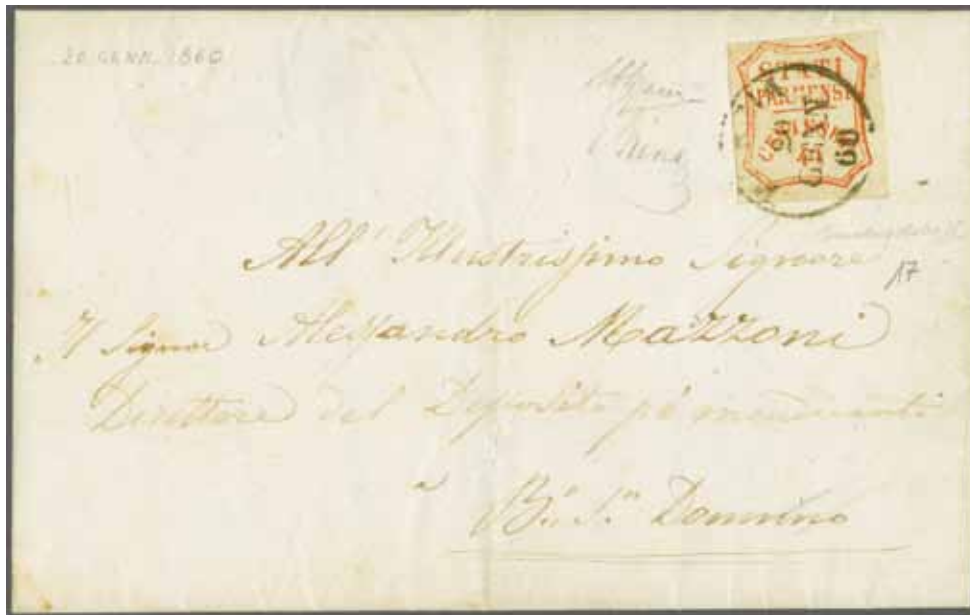 20 GENN. 1860
STATI
PARMENSI
CENTESIMI
20
GENN
60
All' Illustrissimo Signore
17
Il Signor Alessandro Mazzoni
Direttore del Deposito pei mendicanti
a
B.º S.n Donnino